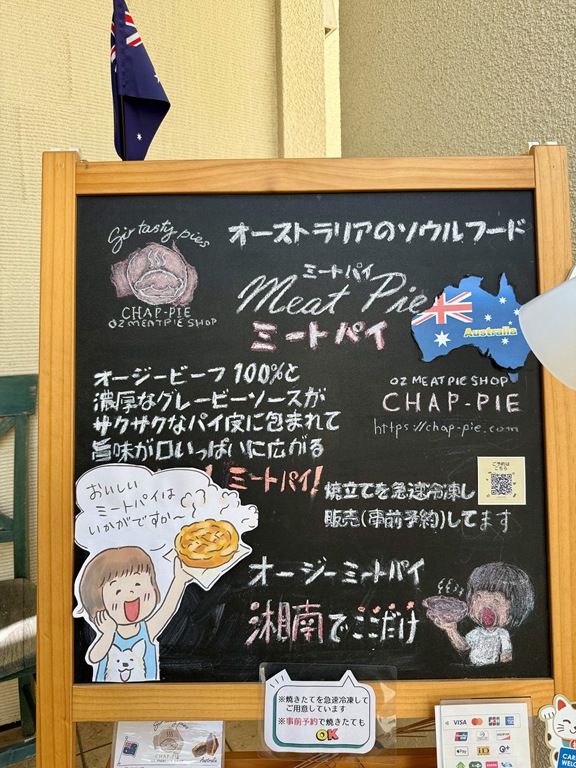 Gir tasty pies
CHAP-PIE
OZ MEAT PIE SHOP
オーストラリアのソウルフード
ミートパイ
Meat Pie
ミートパイ
Australia
オージービーフ 100%と
濃厚なグレービーソースが
サクサクなパイ皮に包まれて
旨味が口いっぱいに広がる
ミートパイ!
OZ MEAT PIE SHOP
CHAP-PIE
https://chap-pie.com
ご予約は
こちら
焼立てを急速冷凍し
販売(事前予約)してます
おいしい
ミートパイは
いかがですか〜
オージーミートパイ
湘南でここだけ
※焼きたてを急速冷凍して
ご用意しています
※事前予約で焼きたても
OK
CHAP-PIE
Australia
VISA
Pay
iD